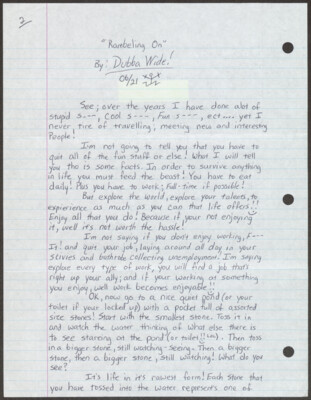 2
"Rambeling On"
By: Dubba Wide!
06/21
See; over the years I have done alot of
stupid s---, cool s---, fun s---, ect.... yet I
never tire of travelling, meeting new and interesting
People!
I'm not going to tell you that you have to
quit all of the fun stuff or else! What I will tell
you tho is some facts. In order to survive anything
in life, you must feed the beast! You have to eat
daily! Plus you have to work; full-time if possible!
But explore the world, explore your talents, to
experience as much as you can that life offers!!
Enjoy all that you do! Because if your not enjoying
it, well it's not worth the hassle!
I'm not saying if you don't enjoy working, F---
It! and quit your job, laying around all day in your
skivies and bathrobe collecting unemployment! I'm saying
explore every type of work, you will find a job that's
right up your ally; and if your working at something
you enjoy, well work becomes enjoyable!!
OK, now go to a nice quiet pond (or your
toilet if your locked up) with a pocket full of assorted
size stones! Start with the smallest stone. Toss it in
and watch the water thinking of what else there is
to see stareing at the pond (or toilet!! LOL). Then toss
in a bigger stone, still watching-seeing. Then a bigger
stone, then a bigger stone, still watching! What do you
see?
It's life in it's rawiest form! Each stone that
you have tossed into the water represents one of